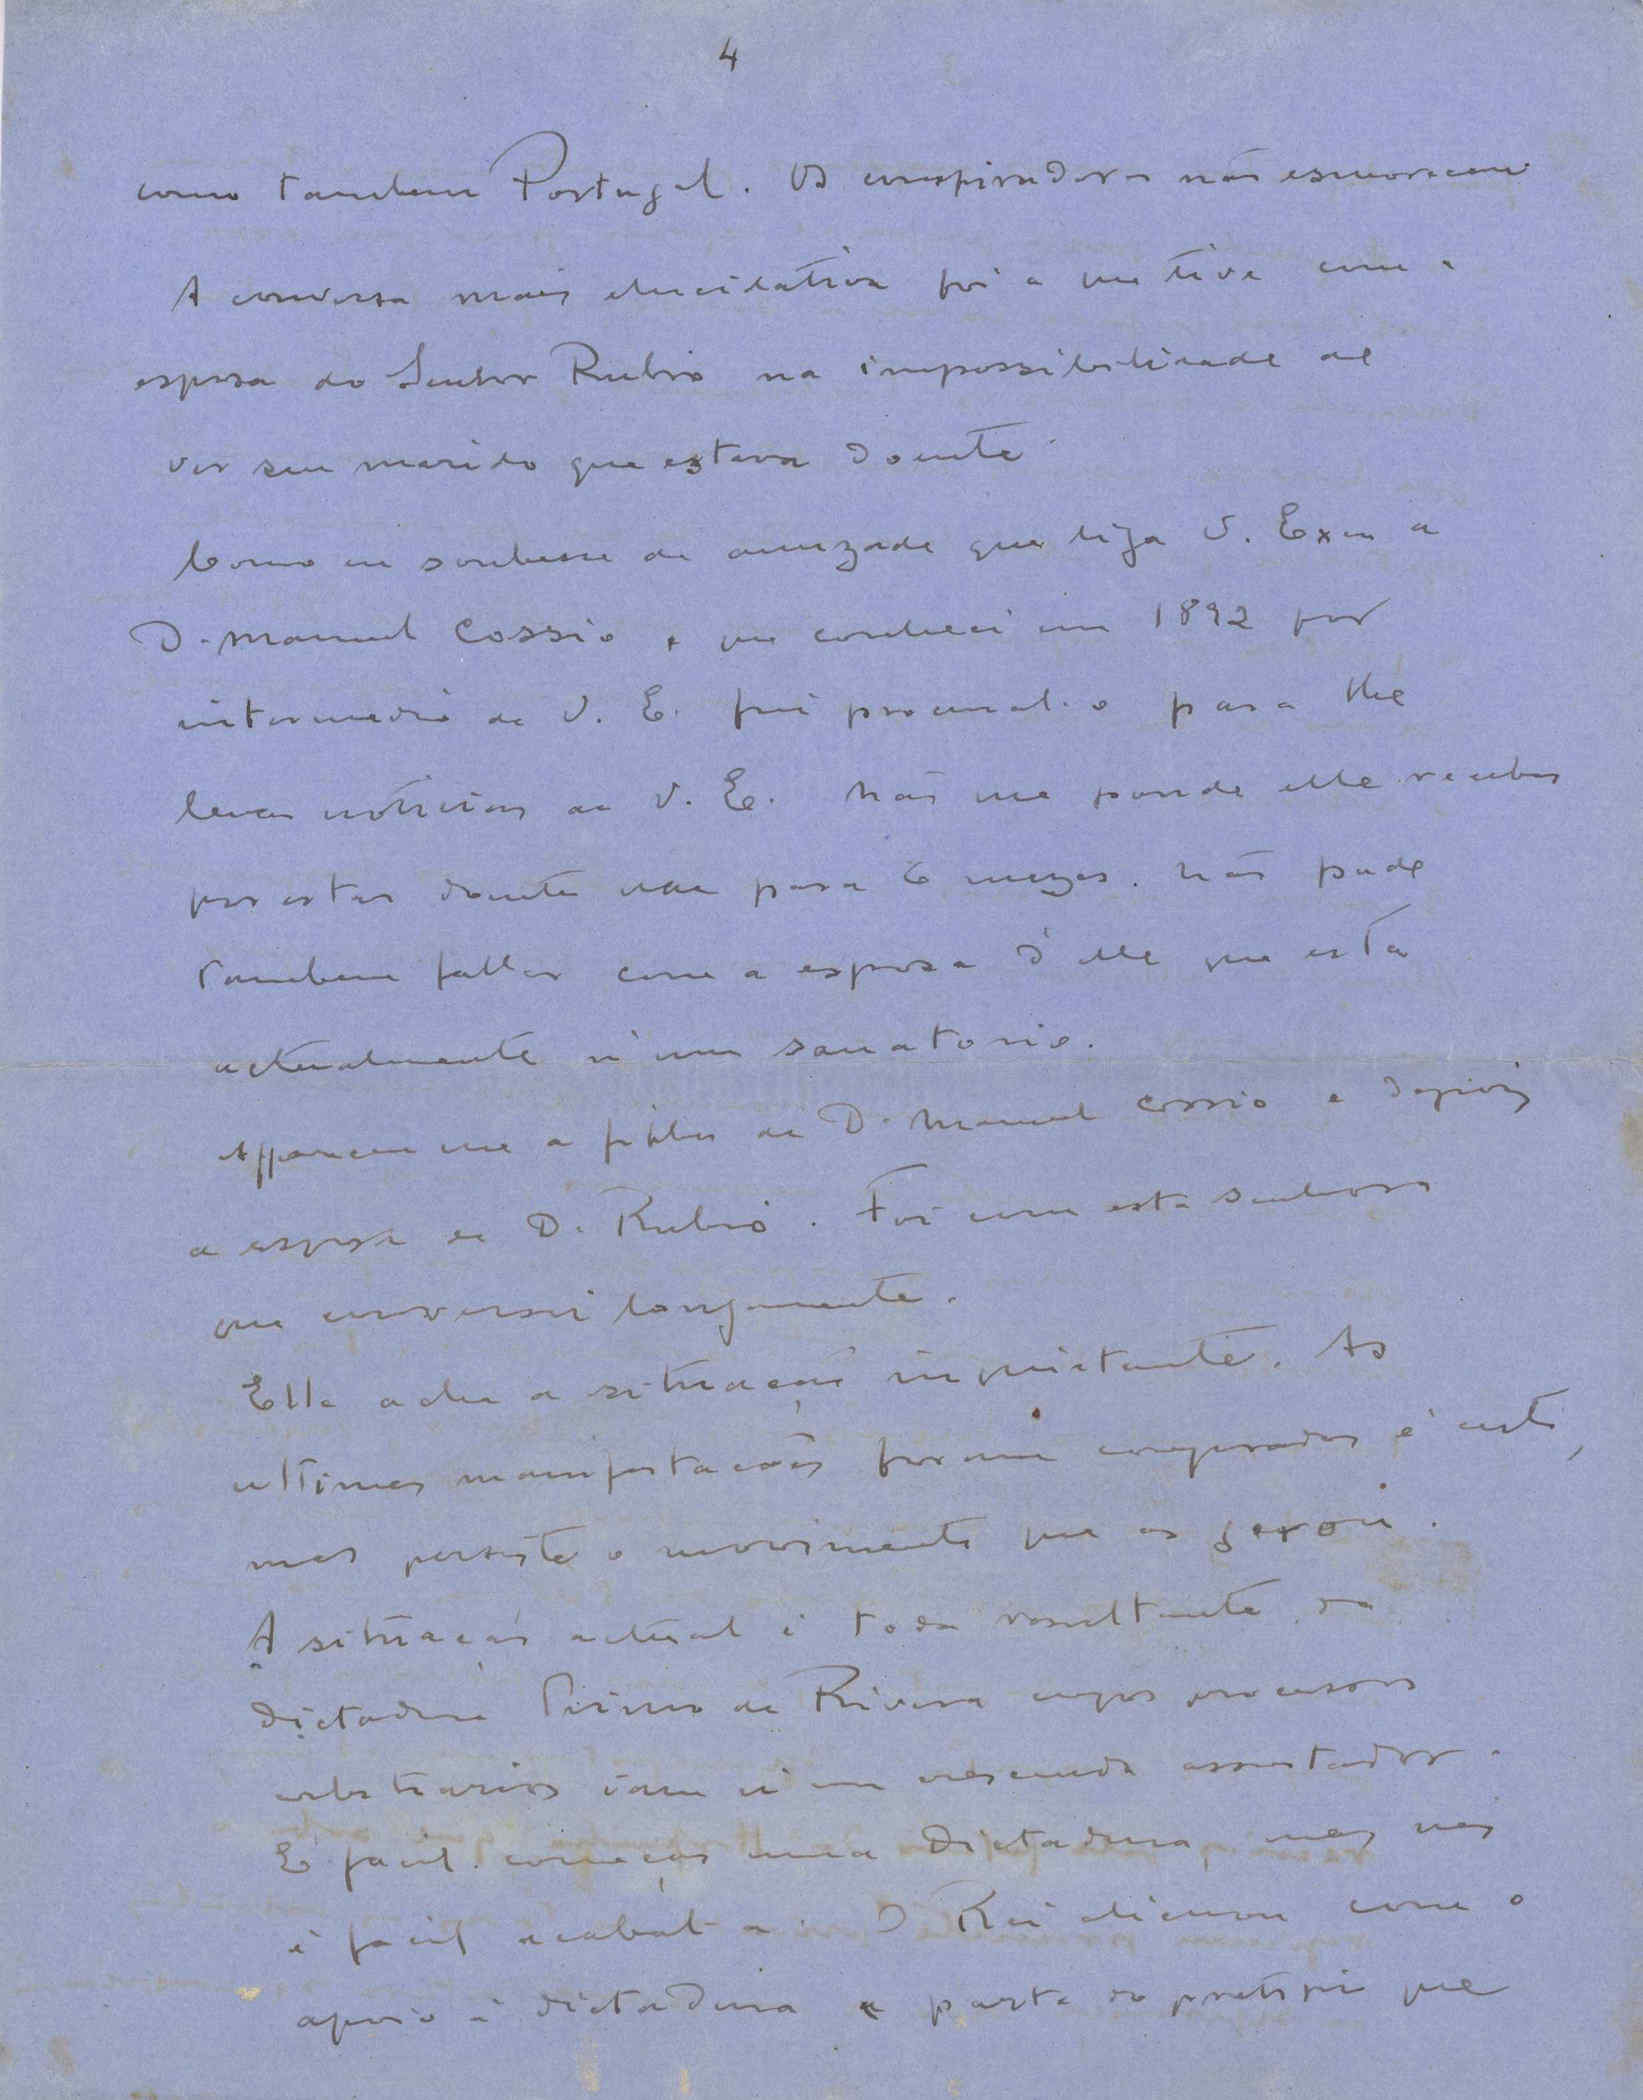 4
como tambem Portugal. Os conspiradores não esmorecem
A conversa mais elucidativa foi a que tive com a
esposa do Senhor Rubio na impossibilidade de
ver seu marido que estava doente
Como eu soubesse da amizade que liga V. Exa a
D. Manuel Cossio e que conheci em 1892 por
intermedio de V. E. fui procural-o para lhe
levar noticias de V. E. Não me poude elle receber
por estar doente vae para 6 mezes. Não pude
tambem fallar com a esposa d'elle que está
actualmente n'um sanatorio.
Appareceu me a filha de D. Manuel Cossio e depois
a esposa de D. Rubió. Foi com esta senhora
que conversei longamente.
Ella acha a situação inquietante. As
ultimas manifestações foram conjuradas é certo,
mas persiste o movimento que as gerou.
A situação actual é toda resultante da
dictadura Primo de Rivera cujos processos
arbitrarios iam n'um crescendo assustador.
É facil começar uma dictadura, mas não
é facil acabal-a. O Rei alienou com o
apoio á dictadura a parte do prestigio que